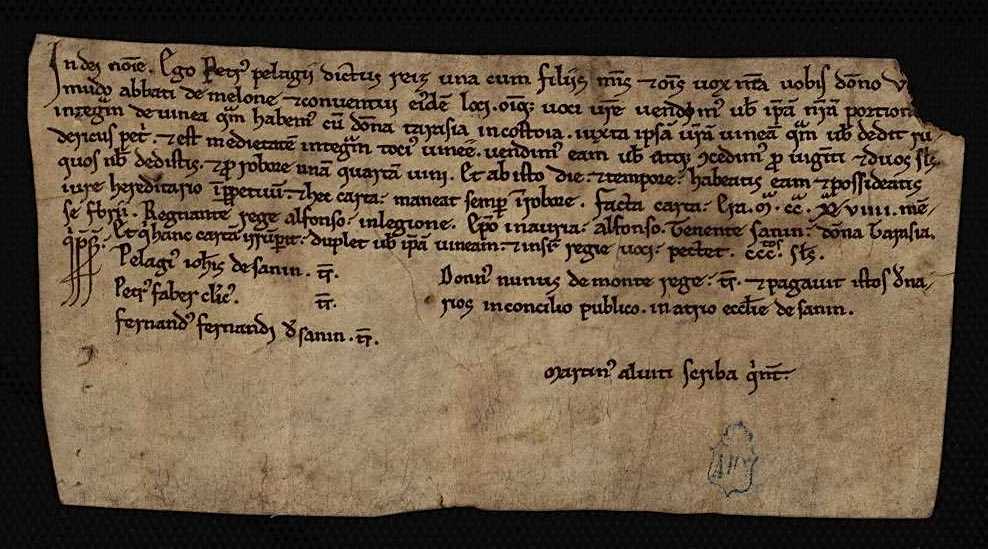 In dei noīe. Ego Petrꝰ pelagii dictus reis una cum filiis m̄is ⁊ oīs uox m̄a uobis dōno
mūdo abbati de melone ⁊ conventui eiꝰdē loci. oīq; uoci ur̄e uendimꝰ ub̄ ip̄ā n̄r̄ā portion
inteḡm de uinea q̄m habemꝰ cū dōna tarasia in costoia. iuxta ipsā ur̄ā uineā q̄m ub̄ dedit
dericus pet̄. ⁊ est medietatē inteḡm tociꝰ uinee. uendimꝰ eam ub̄ atq; ꝯcedimꝰ ꝓ uiginti ⁊ duos sl̄s
quos nb̄ dedistis. ⁊ ꝓ robore unā quartā uini. Et ab isto die ⁊ tempore habeatis eam ⁊ possideatis
iure hereditario īꝑpetuū. ⁊ hec carta maneat semp̄ ī robore. facta carta. E͂ra. M͂. CC͂. XL VIIII. mē-
se fb̄rii. Regnante rege alfonso in legione. Ep̄o in auria alfonso. Tenente sanin dōna tarasia.
Et q̄ hanc cartā irrūp̄it duplet ub̄ ip̄ā uineam ⁊ insr̄ regie uoci pectet. CCC͂tos. sl̄s.
q̄ p̄s̄.
Pelagiꝰ ioh̄is de sanin. t̄s̄.
Petrꝰ faber cl̄icꝰ. t̄s̄.
fernandꝰ fernandi d̄ sanin. t̄s̄.
Donnꝰ nunus de monte rege. t̄s̄. ⁊ pagauit istos dn̄a-
rios in concilio publico. in atrio eccl̄ie de sanin.
Martinꝰ aluiti scriba q̄ n̄t.